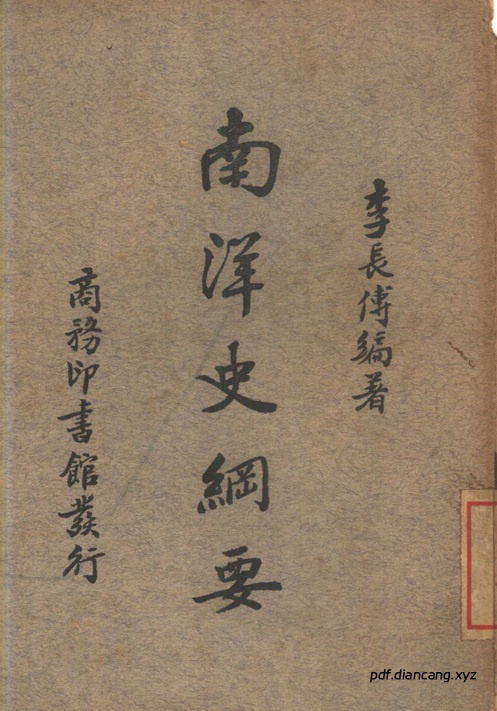 李長傅編著
南洋史綱要
商務印書館發行
pdf.diancang.xyz